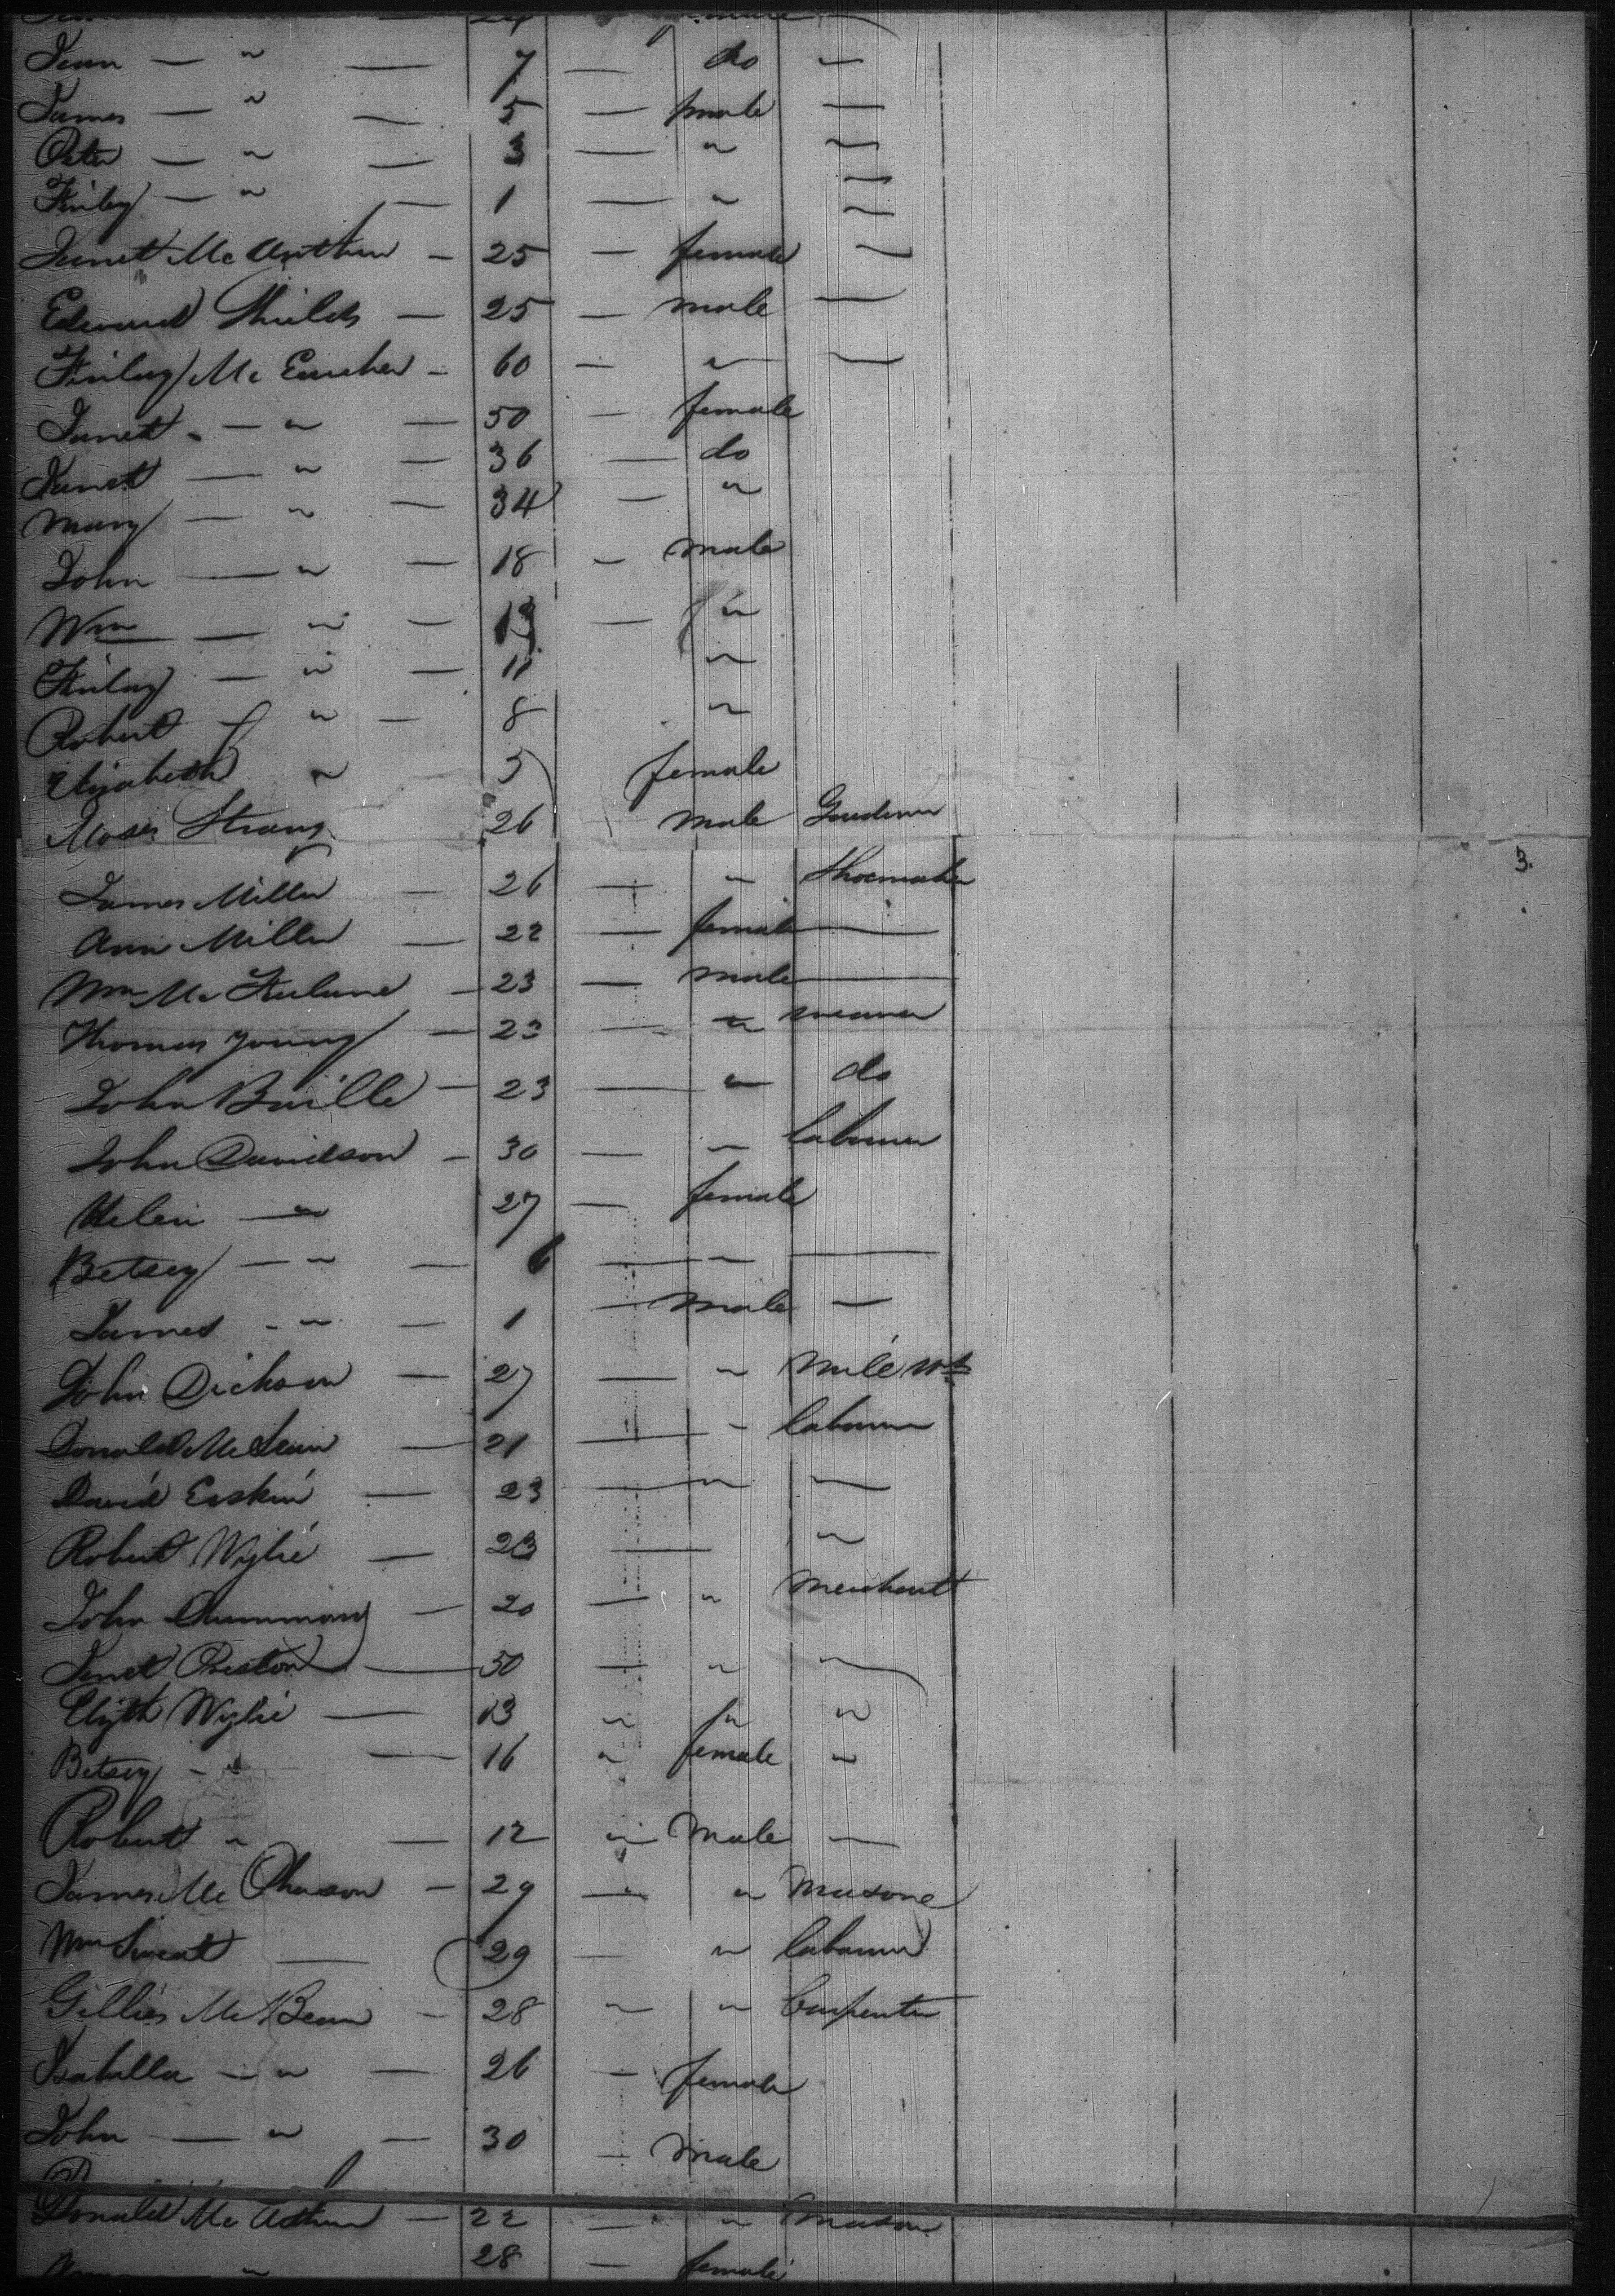 Jean — " — 7 — do —
James — " — 5 — male —
Peter — " — 3 — " —
Finlay — " — 1 — " —
Janet Mc Arthur — 25 — female —
Edward Shields — 25 — male —
Finlay Mc Eacher — 60 — " —
Janet — " — 50 — female
Janet — " — 36 — do
Mary — " — 34 — "
John — " — 18 — male
Wm — " — 13 — "
Finlay — " — 11 "
Robert — " — 8 "
Elizabeth " 5 female
Moses Strang 26 male Gardener
3.
James Miller — 26 — " Shoemaker
Ann Miller — 22 — female —
Wm Mc Farlane — 23 — male —
Thomas Young — 23 — " weaver
John Baille — 23 — " do
John Davidson — 30 — " labourer
Helen — " 27 — female
Betsey — " — 6 — " —
James - " — 1 — male —
John Dickson — 27 — " Mile Wt
Donald McLean — 21 — " labourer
David Erskin — 23 — " —
Robert Wylie — 23 — "
John Drummond — 20 — " merchant
Janet Preston — 50 — " "
Elizth Wylie — 13 " " "
Betsey - " — 16 " female "
Robert " — 12 " Male —
James Mc Pherson — 29 — " Masone
Wm Sweat — 29 — " labourer
Gillies McBean — 28 " " Carpenter
Isabella — " — 26 — female
John — " — 30 — Male
Donald Mc Arthur — 22 — " mason
" 28 — female